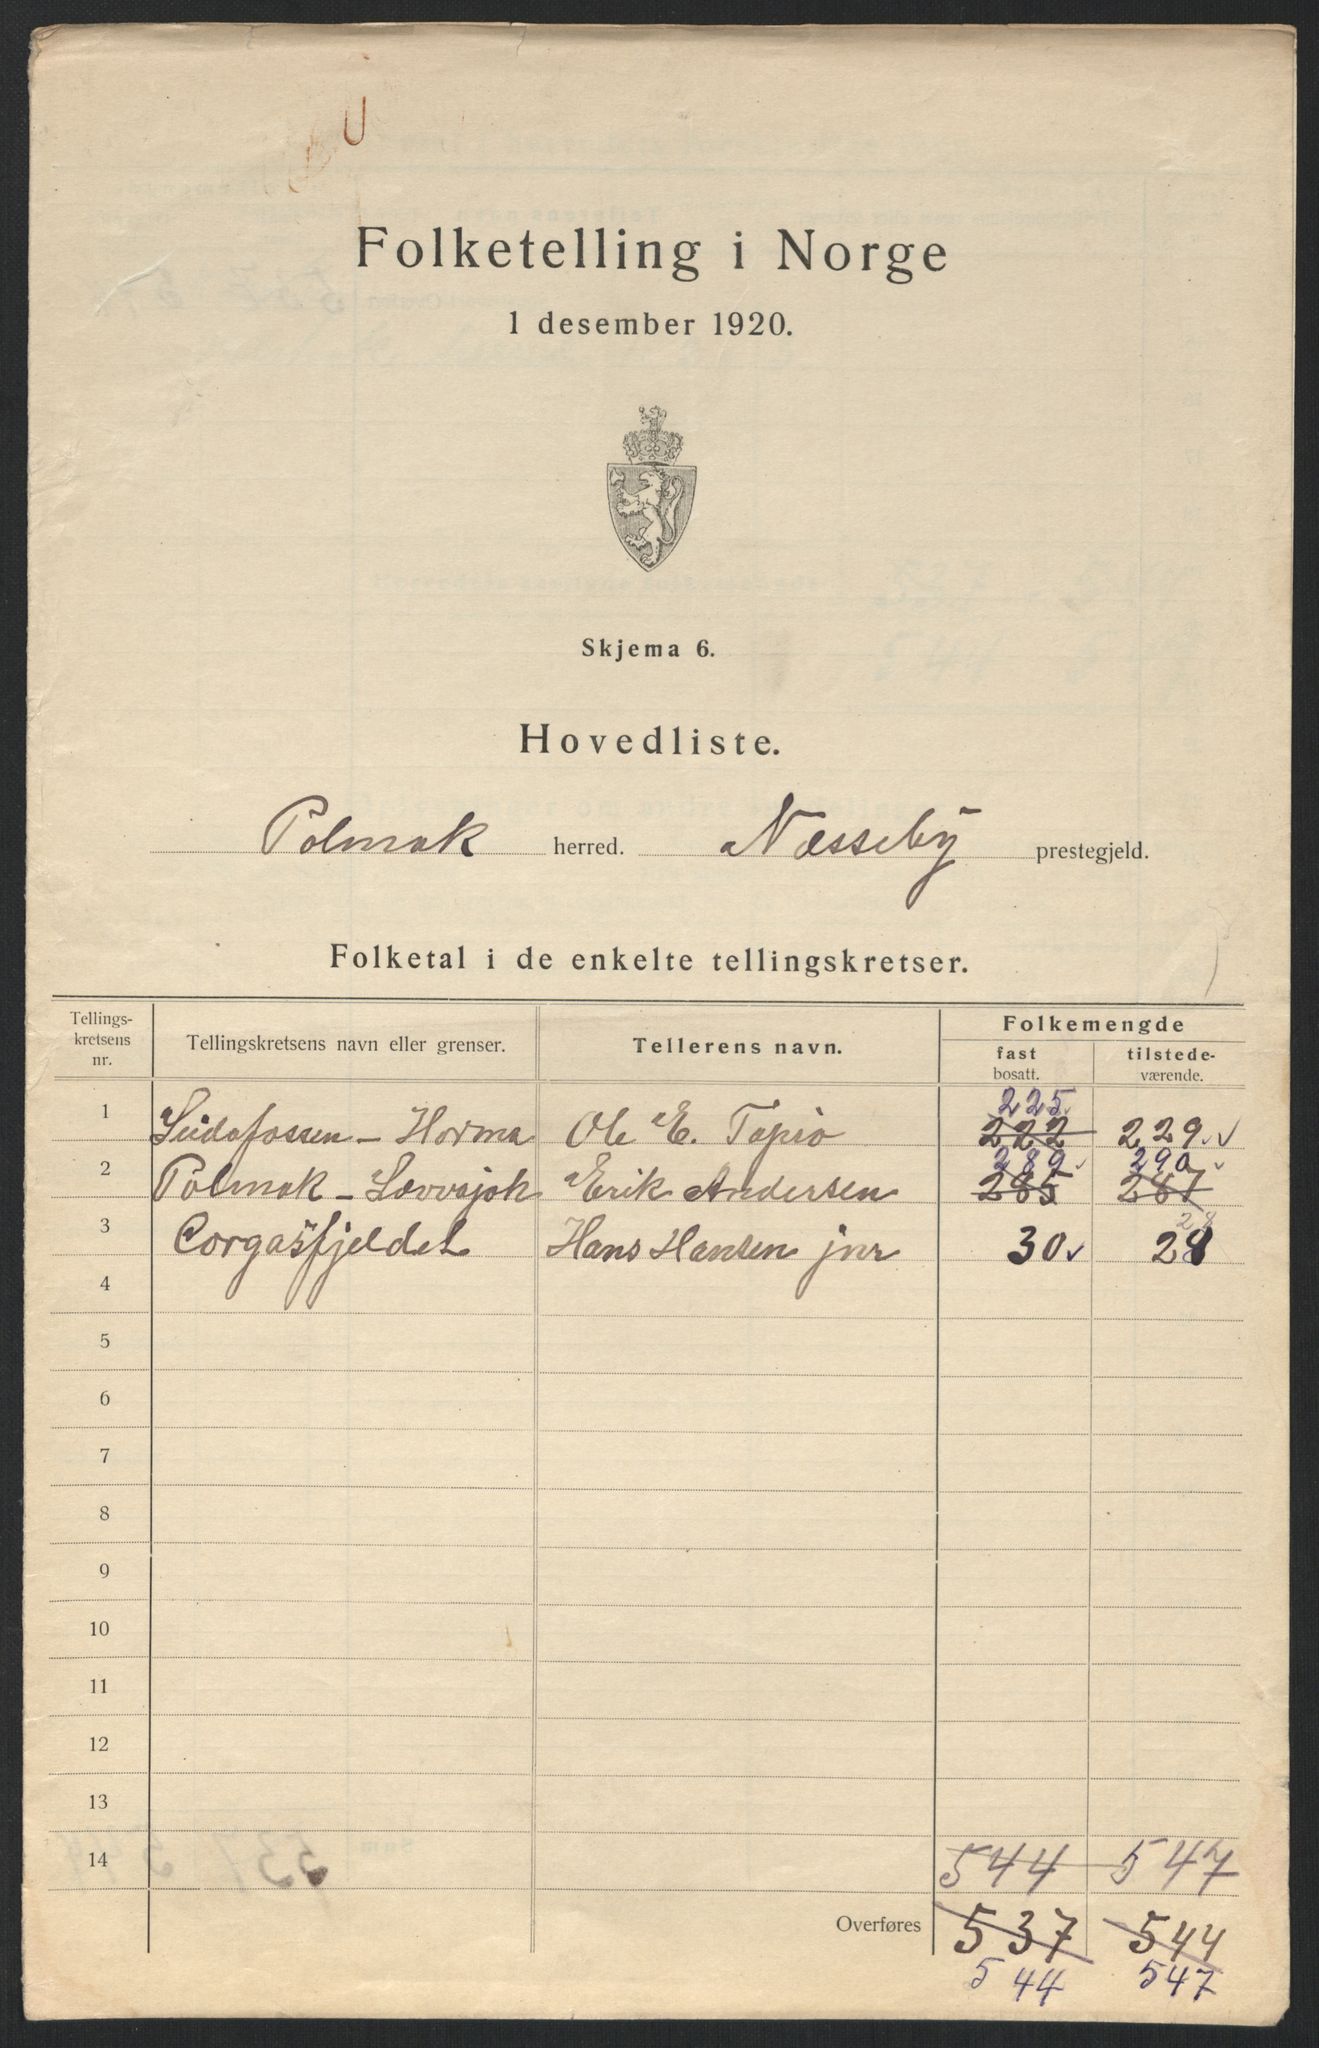 Folketelling i Norge
1 desember 1920.
Skjema 6.
Hovedliste.
Polmak herred. Næsseby prestegjeld.
Folketal i de enkelte tellingskretser.
Tellings-kretsens nr. Tellingskretsens navn eller grenser. Tellerens navn. Folkemengde
fast bosatt. tilstede-værende.
225
1 Seidafossen - Horma Ole E. Tapio 222 229
289 290
2 Polmak - Levvajok Erik Andersen 285 287
28
3 Corgašfjeldet Hans Hansen jnr 30 28
4
5
6
7
8
9
10
11
12
13
14 544 547
Overføres 537 544
544 547